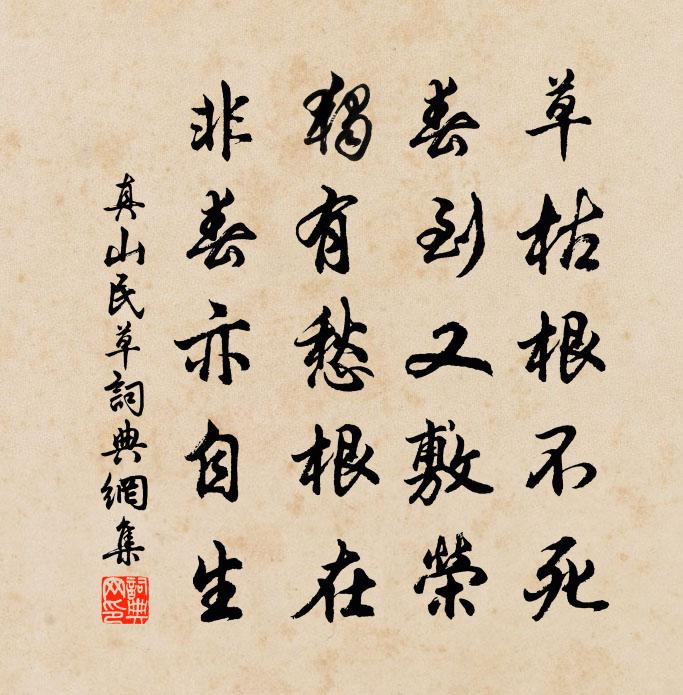 草枯根不死
春到又敷榮
獨有愁根在
非春亦自生
真山民草詞典網集
詞典網印